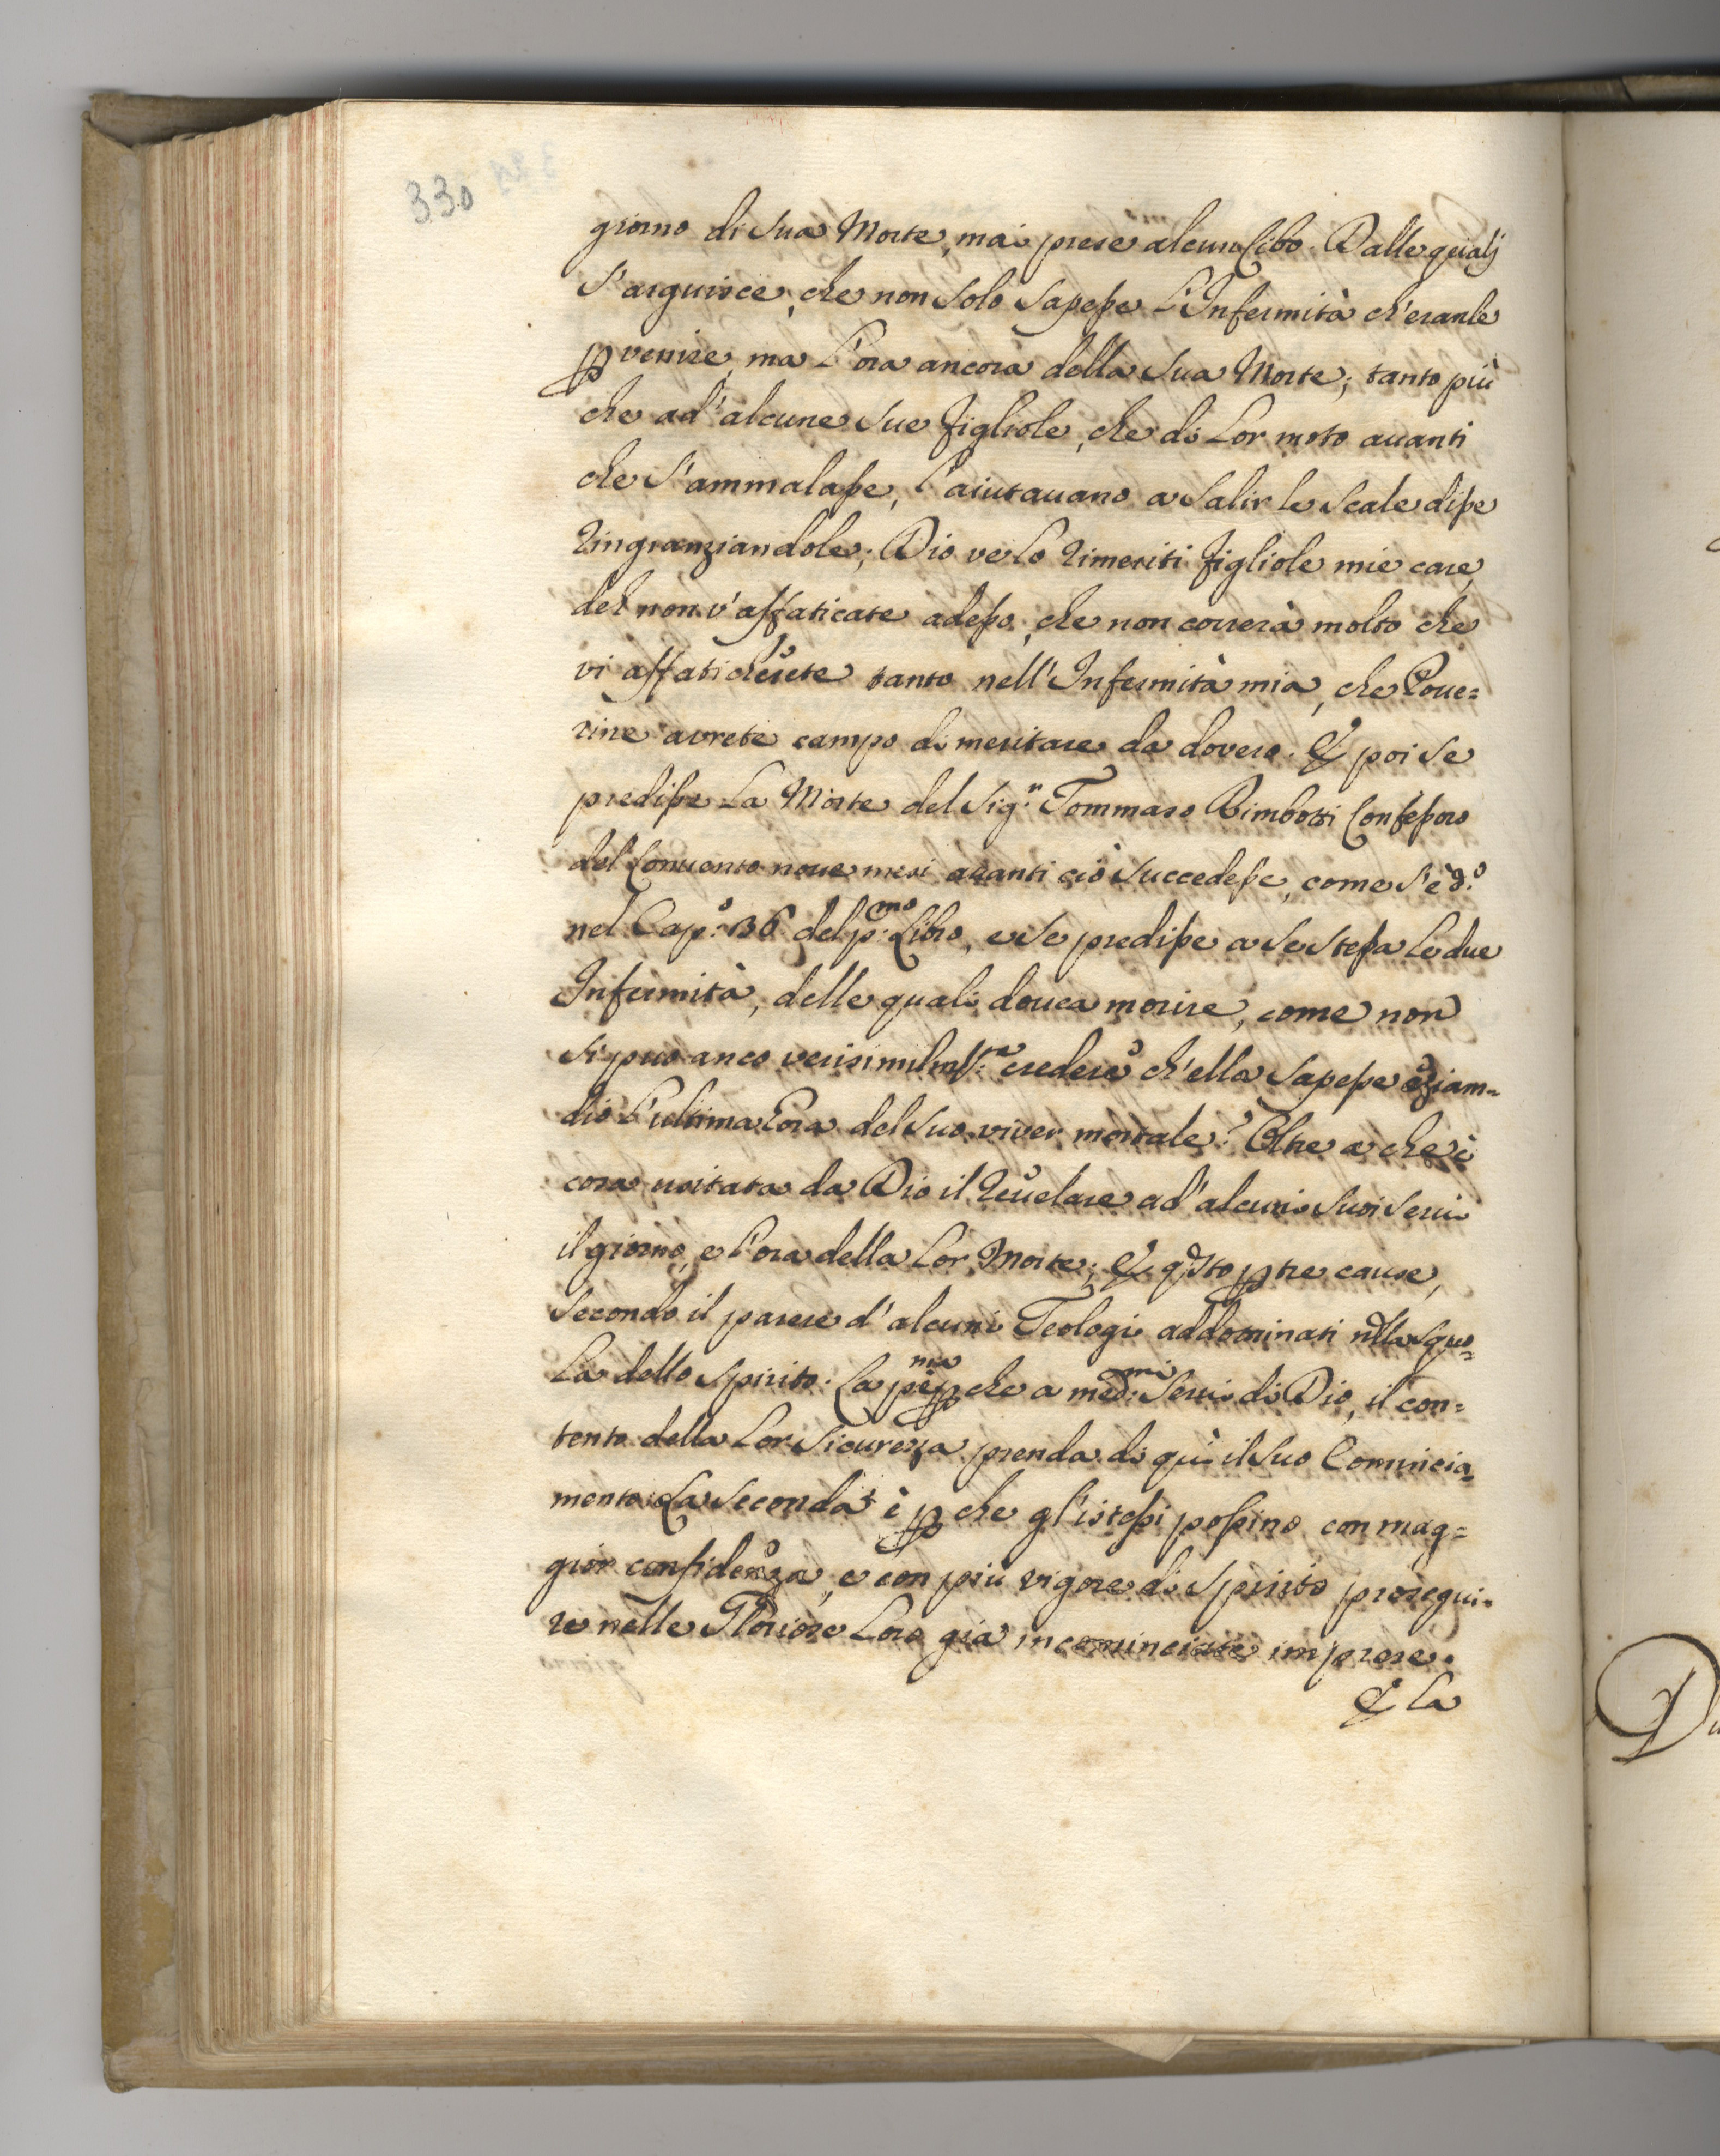 330
giorno di sua Morte, mai prese alcun Cibo. Dalle quali
s'arguisce, che non solo sapesse l'Infermità ch'eranle
per venire, ma l'ora ancora della sua Morte; tanto più
che ad'alcune sue figliole, che di lor moto auanti
che s'ammalasse, l'aiutauano a salir le scale disse
ringranziandole; Dio ve lo rimeriti figliole mie care,
deh non v'affaticate adesso, che non correrà molto che
vi affaticherete tanto nell'Infermità mia, che Poue=
rine avrete campo di meritare da dovero. E poi se
predisse la Morte del Sig.r Tommaso Bimbotti Confessoro
del Conuento noue mesi auanti ciò succedesse, come s'è d.o
nel Cap.o 136 del p.mo Libro, e se predisse a se stessa le due
Infermità, delle quali douea morire, come non
si puo anco verisimilm.te credere ch'ella sapesse eziam=
dio l'ultima Ora del suo viver mortale? Oltre a che è
cosa usitata da Dio il reuelare ad'alcuni suoi serui
il giorno, e l'ora della lor Morte; E q.sto per tre cause,
secondo il parere d'alcuni Teologi addottrinati nella squo=
la dello spirito. La p.ma è per che a med.mi serui di Dio, il con=
tento della lor sicurezza prenda di qui il suo Comincia=
mento. La seconda è per che gl'istessi possino con mag=
gior confidenza, e con più vigore di spirito prosegui=
re nelle Gloriose loro già incominciate imprese.
E la